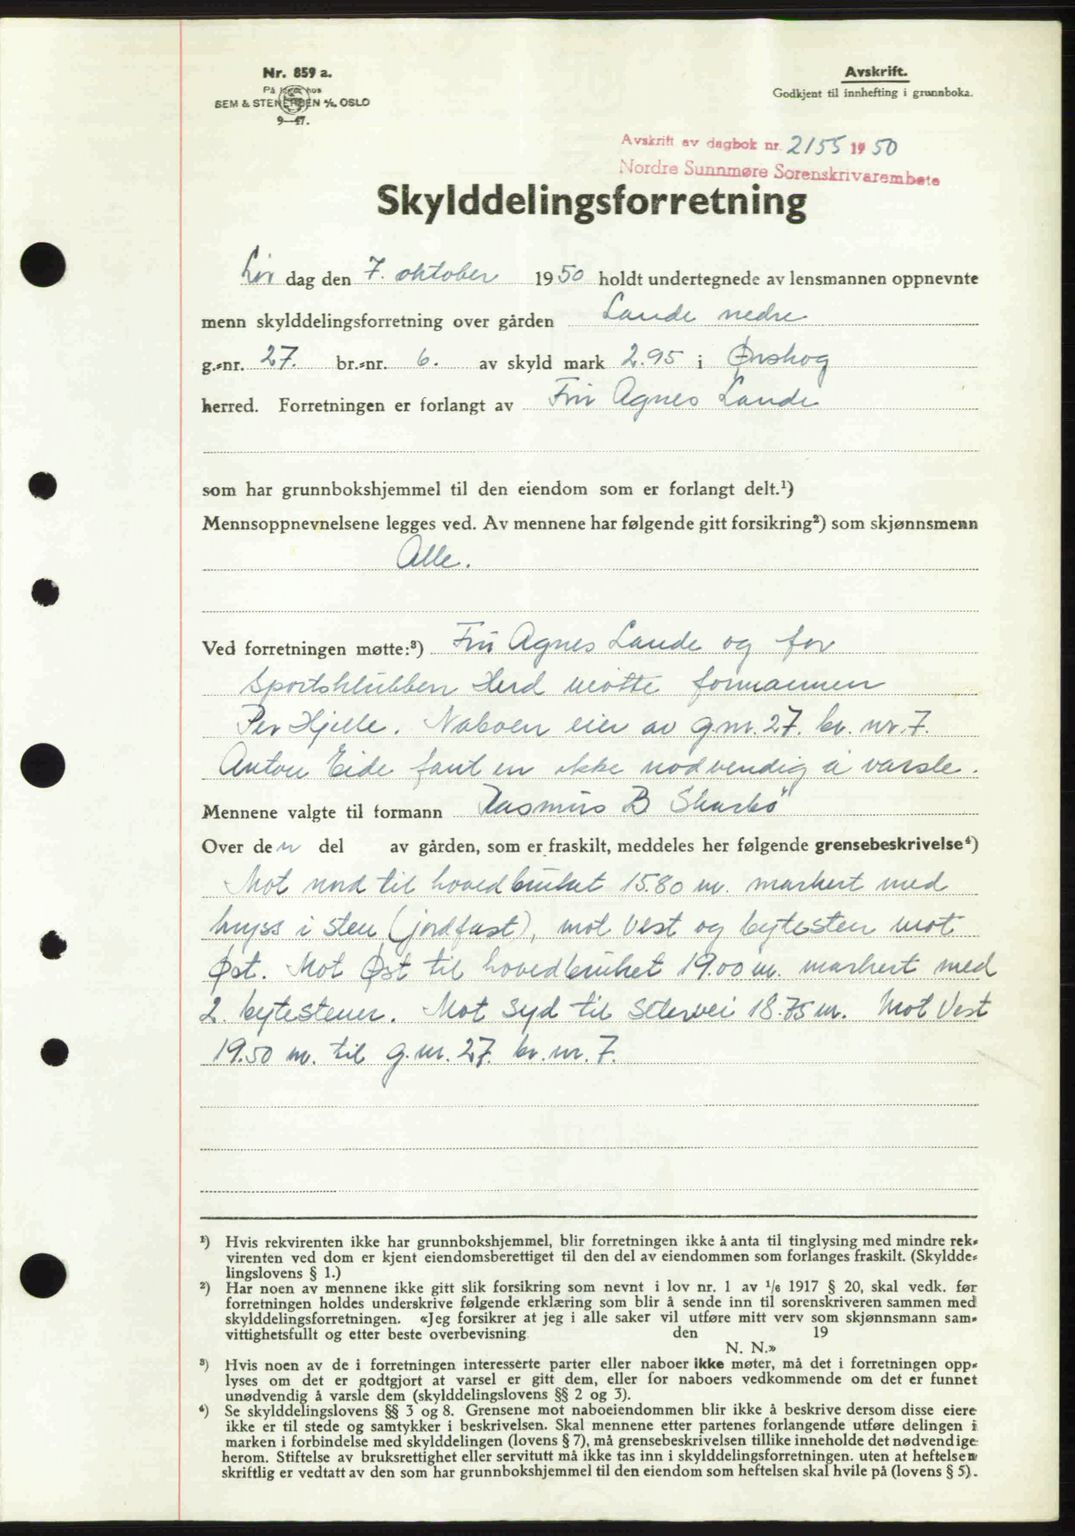 Nr. 859 a.
På lager hos
SEM & STENERSEN A/S. OSLO
9—47.
Avskrift.
Godkjent til innhefting i grunnboka.
Avskrift av dagbok nr. 2155 1950
Nordre Sunnmøre Sorenskrivarembete
Skylddelingsforretning
Lør dag den 7. oktober 1950 holdt undertegnede av lensmannen oppnevnte
menn skylddelingsforretning over gården Lande nedre
g.-nr. 27. br.-nr. 6. av skyld mark 2.95 i Ørskog
herred. Forretningen er forlangt av Fru Agnes Lande
som har grunnbokshjemmel til den eiendom som er forlangt delt.¹)
Mennsoppnevnelsene legges ved. Av mennene har følgende gitt forsikring²) som skjønnsmenn
Alle.
Ved forretningen møtte:³) Fru Agnes Lande og for
Sportsklubben Herd møtte formannen
Per Hjelle. Naboen eier av g.nr. 27. br. nr. 7.
Anton Eide fant en ikke nødvendig å varsle.
Mennene valgte til formann Rasmus B Skarbø
Over den del av gården, som er fraskilt, meddeles her følgende grensebeskrivelse⁴)
Mot nord til hovedbruket 15.80 m. markert med
kryss i sten (jordfast), mot Vest og bytesten mot
Øst. Mot Øst til hovedbruket 19.00 m. markert med
2. bytestener. Mot Syd til setervei 18.75 m. Mot Vest
19.50 m. til g.nr. 27. br. nr. 7.
¹) Hvis rekvirenten ikke har grunnbokshjemmel, blir forretningen ikke å anta til tinglysing med mindre rek-
virenten ved dom er kjent eiendomsberettiget til den del av eiendommen som forlanges fraskilt. (Skyldde-
lingslovens § 1.)
²) Har noen av mennene ikke gitt slik forsikring som nevnt i lov nr. 1 av 1/6 1917 § 20, skal vedk. før
forretningen holdes underskrive følgende erklæring som blir å sende inn til sorenskriveren sammen med
skylddelingsforretningen. «Jeg forsikrer at jeg i alle saker vil utføre mitt verv som skjønnsmann sam-
vittighetsfullt og etter beste overbevisning den 19
N. N.»
³) Hvis noen av de i forretningen interesserte parter eller naboer ikke møter, må det i forretningen opp-
lyses om det er godtgjort at varsel er gitt dem, eller for naboers vedkommende om det er funnet
unødvendig å varsle dem (skylddelingslovens §§ 2 og 3).
⁴) Se skylddelingslovens §§ 3 og 8. Grensene mot naboeiendommen blir ikke å beskrive dersom disse eiere
ikke er til stede og samtykker i beskrivelsen. Skal mennene etter partenes forlangende utføre delingen i
marken i forbindelse med skylddelingen (lovens § 7), må grensebeskrivelsen tillike inneholde det nødvendige
herom. Stiftelse av bruksrettighet eller servitutt må ikke tas inn i skylddelingsforretningen. uten at heftelsen
skriftlig er vedtatt av den som har grunnbokshjemmel til den eiendom som heftelsen skal hvile på (lovens § 5).